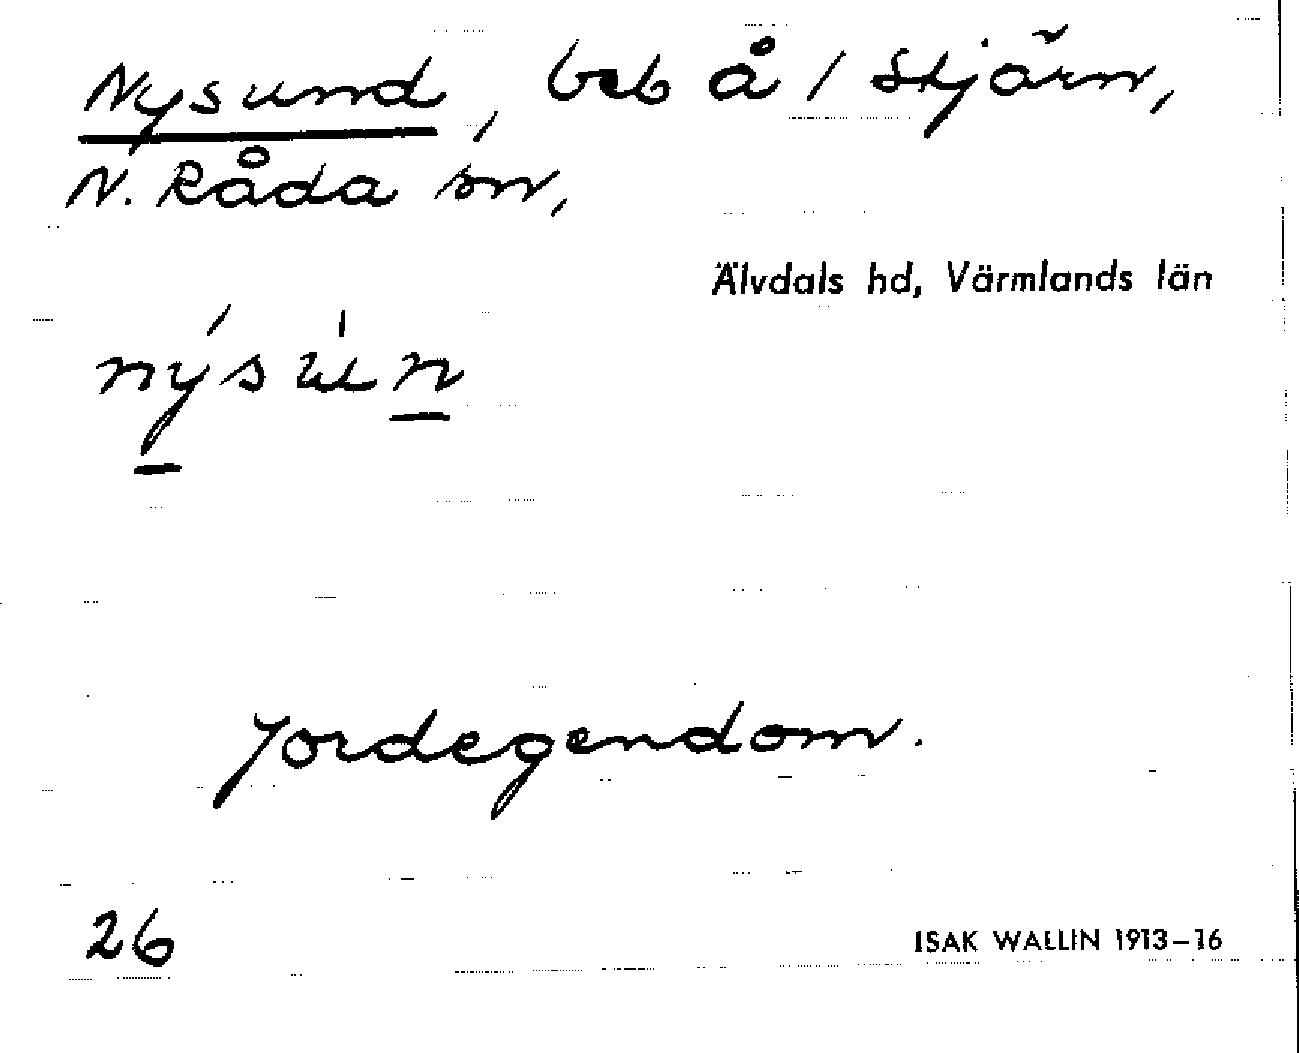 Nysund, beb å / Stjärn,
N. Råda sn,
Älvdals hd, Värmlands län
nýsún
Jordegendom.
26
ISAK WALLIN 1913–16